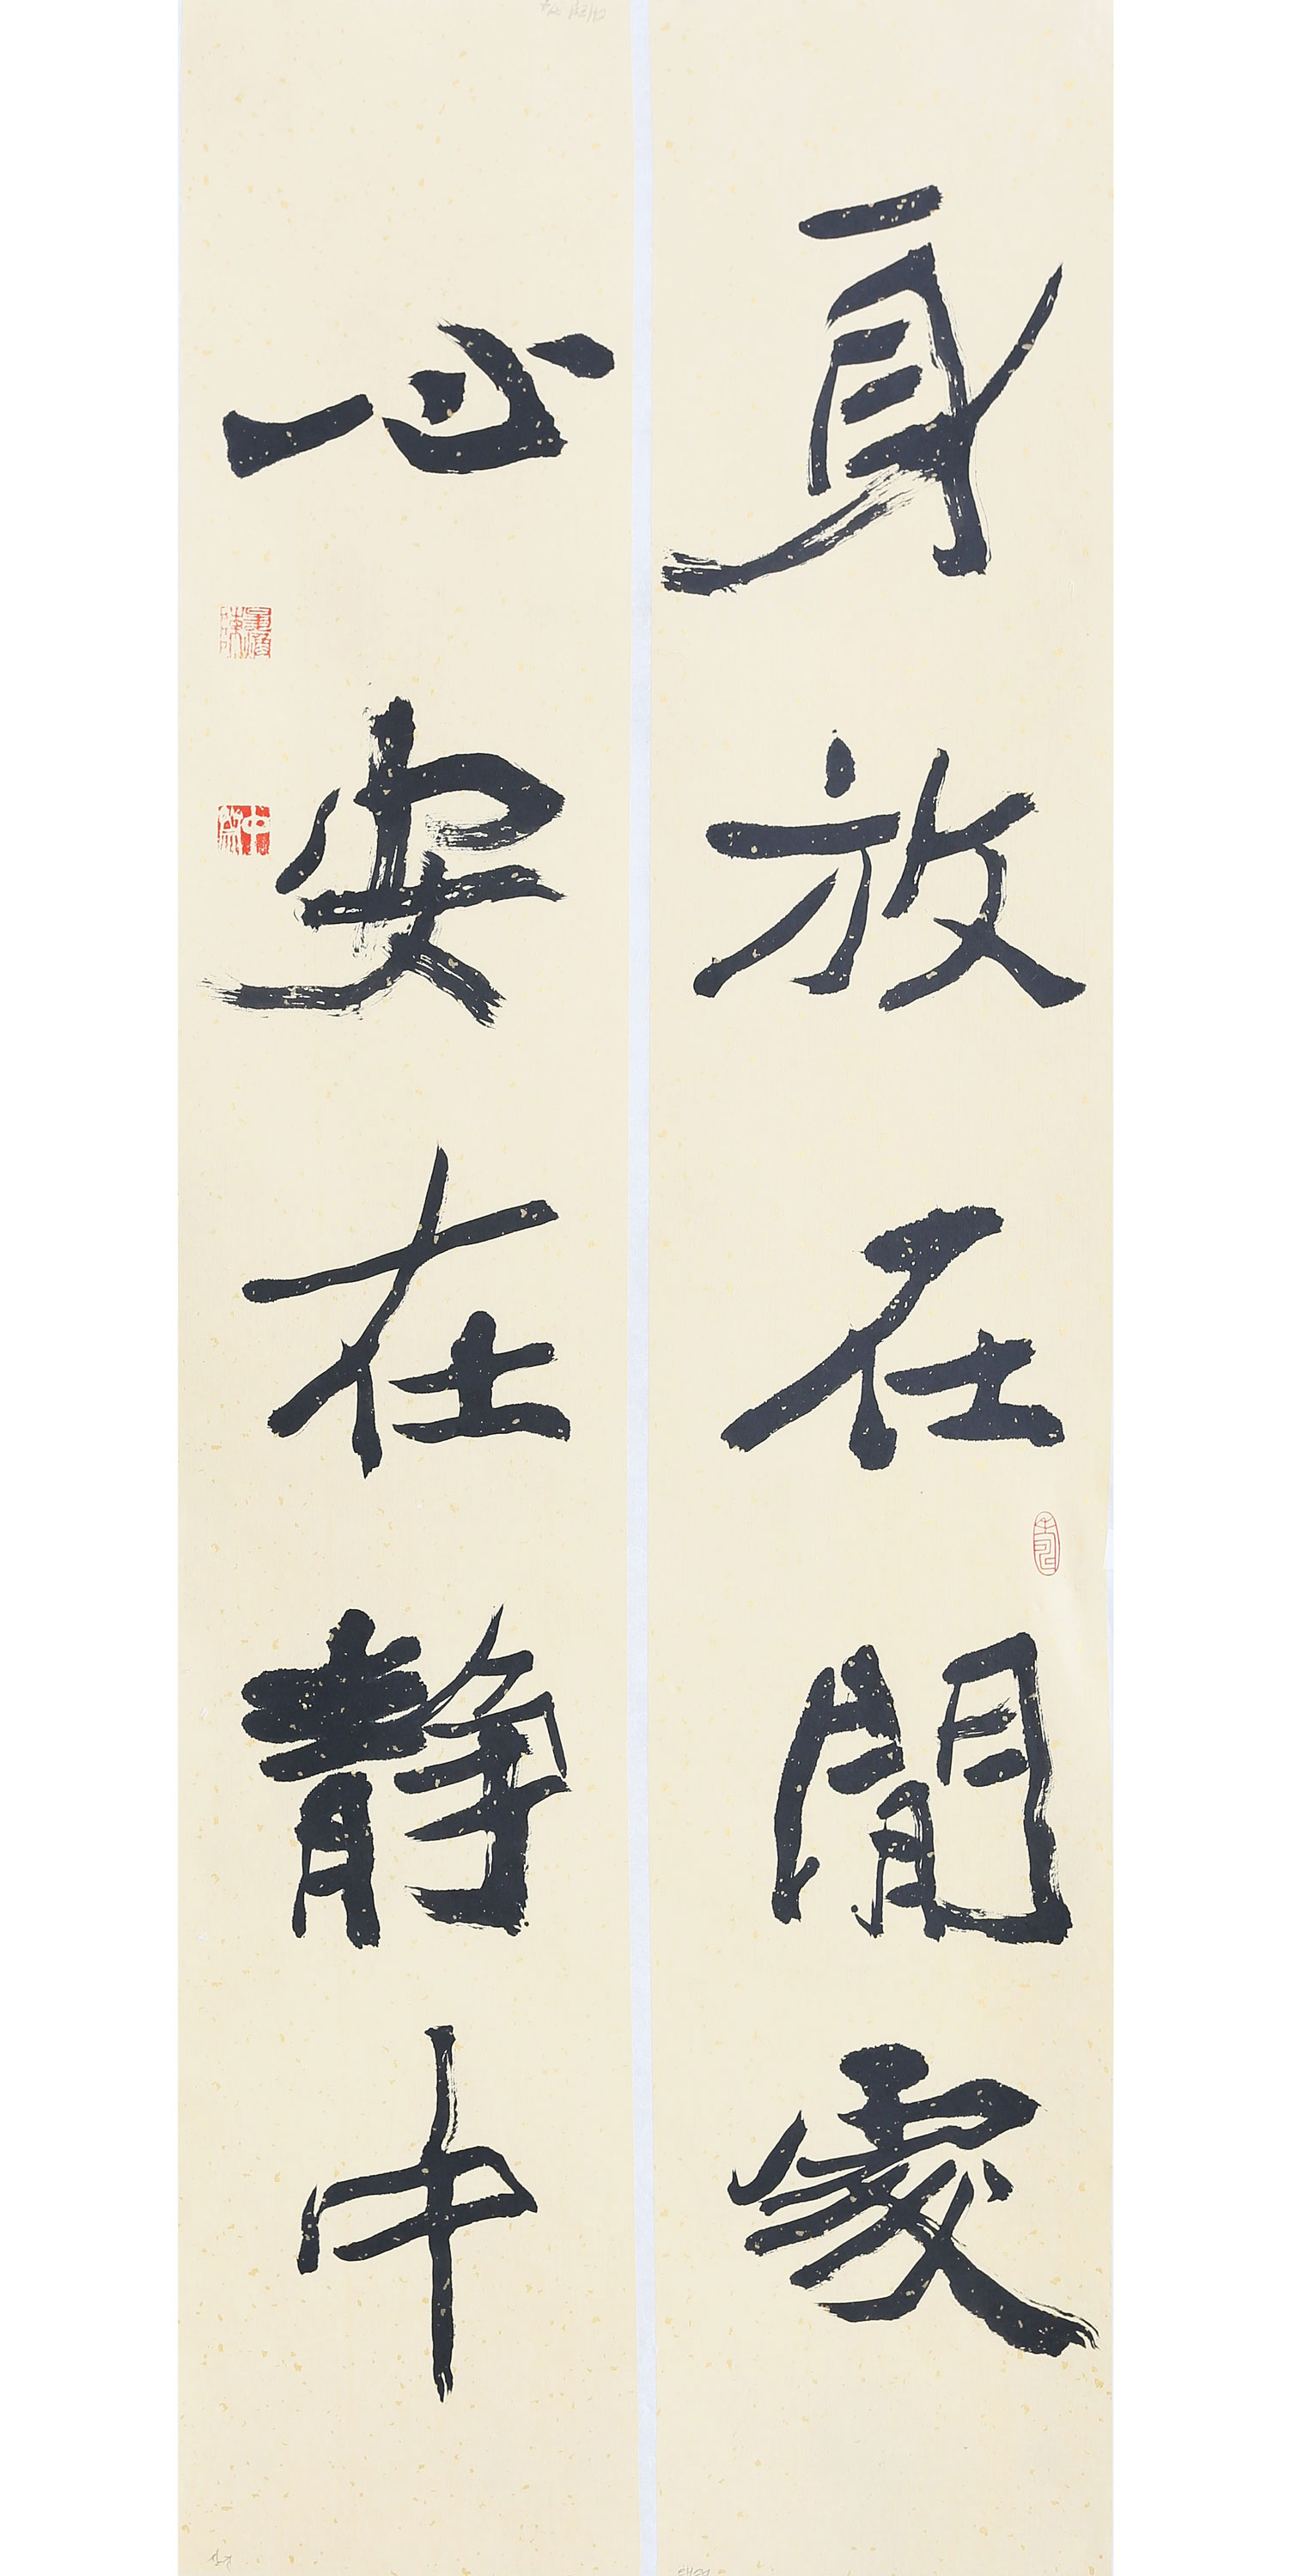 身放在閒處
心安在静中